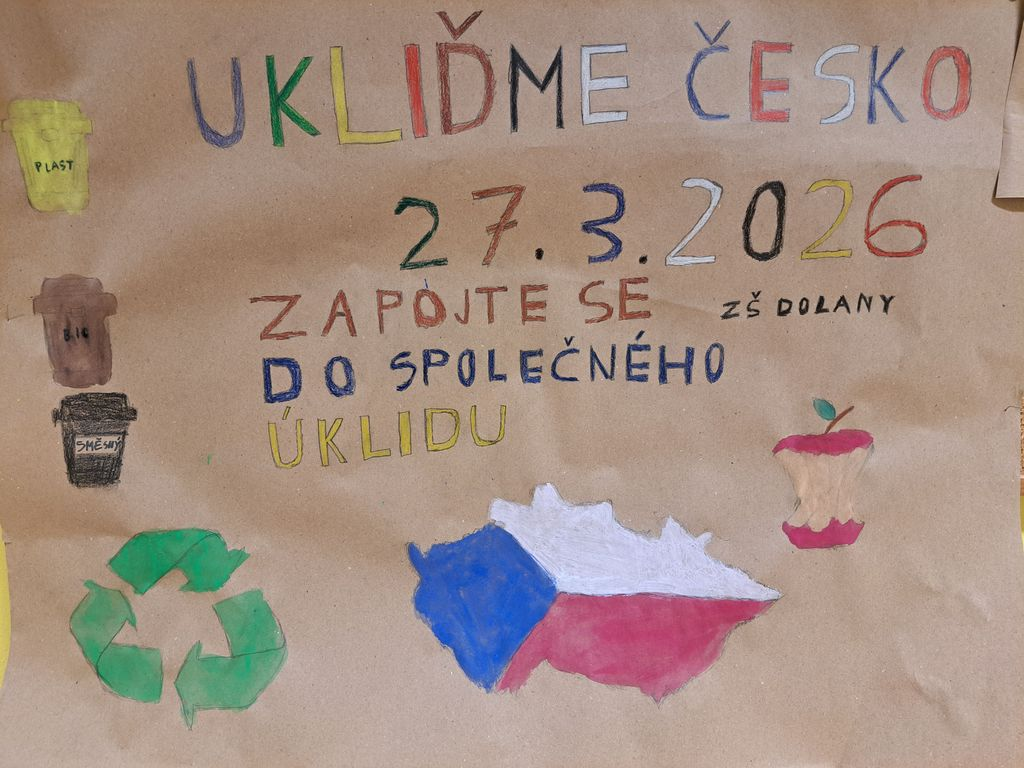 UKLIĎME ČESKO
27.3.2026
ZAPOJTE SE
ZŠ DOLANY
DO SPOLEČNÉHO
ÚKLIDU
PLAST
BIO
SMĚSNÝ